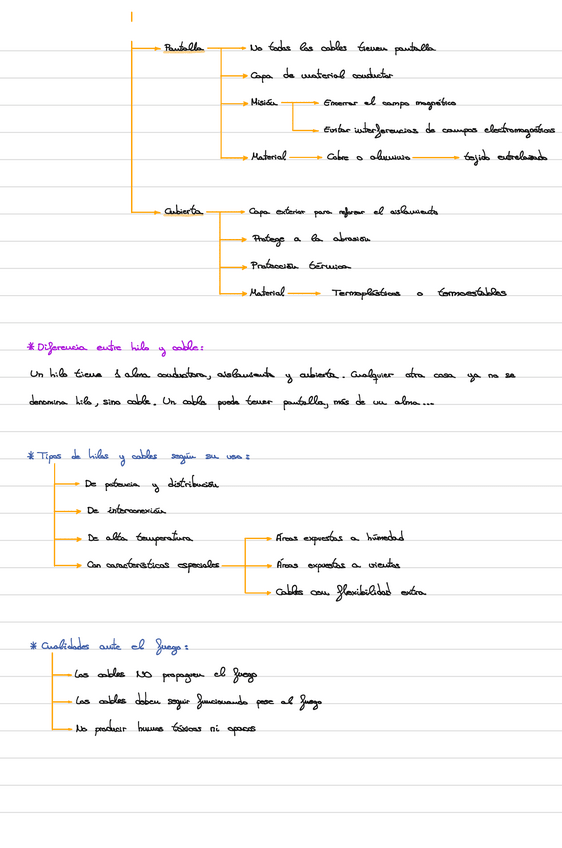 Pantalla → No todos los cables tienen pantalla
→ Capa de material conductor
→ Misión → Encerrar el campo magnético
→ Evitar interferencias de campos electromagnéticos
→ Material → Cobre o aluminio → tejido entrelazado
Cubierta → Capa exterior para reforzar el aislamiento
→ Protege a la abrasión
→ Protección térmica
→ Material → Termoplásticos o termoestables
* Diferencia entre hilo y cable:
Un hilo tiene 1 alma conductora, aislamiento y cubierta. Cualquier otra cosa ya no se
denomina hilo, sino cable. Un cable puede tener pantalla, más de un alma...
* Tipos de hilos y cables según su uso:
→ De potencia y distribución
→ De interconexión
→ De alta temperatura → Áreas expuestas a húmedad
→ Con características especiales → Áreas expuestas a vientos
→ Cables con flexibilidad extra
* Cualidades ante el fuego:
→ Los cables NO propaguen el fuego
→ Los cables deben seguir funcionando pese al fuego
→ No producir humos tóxicos ni opacos